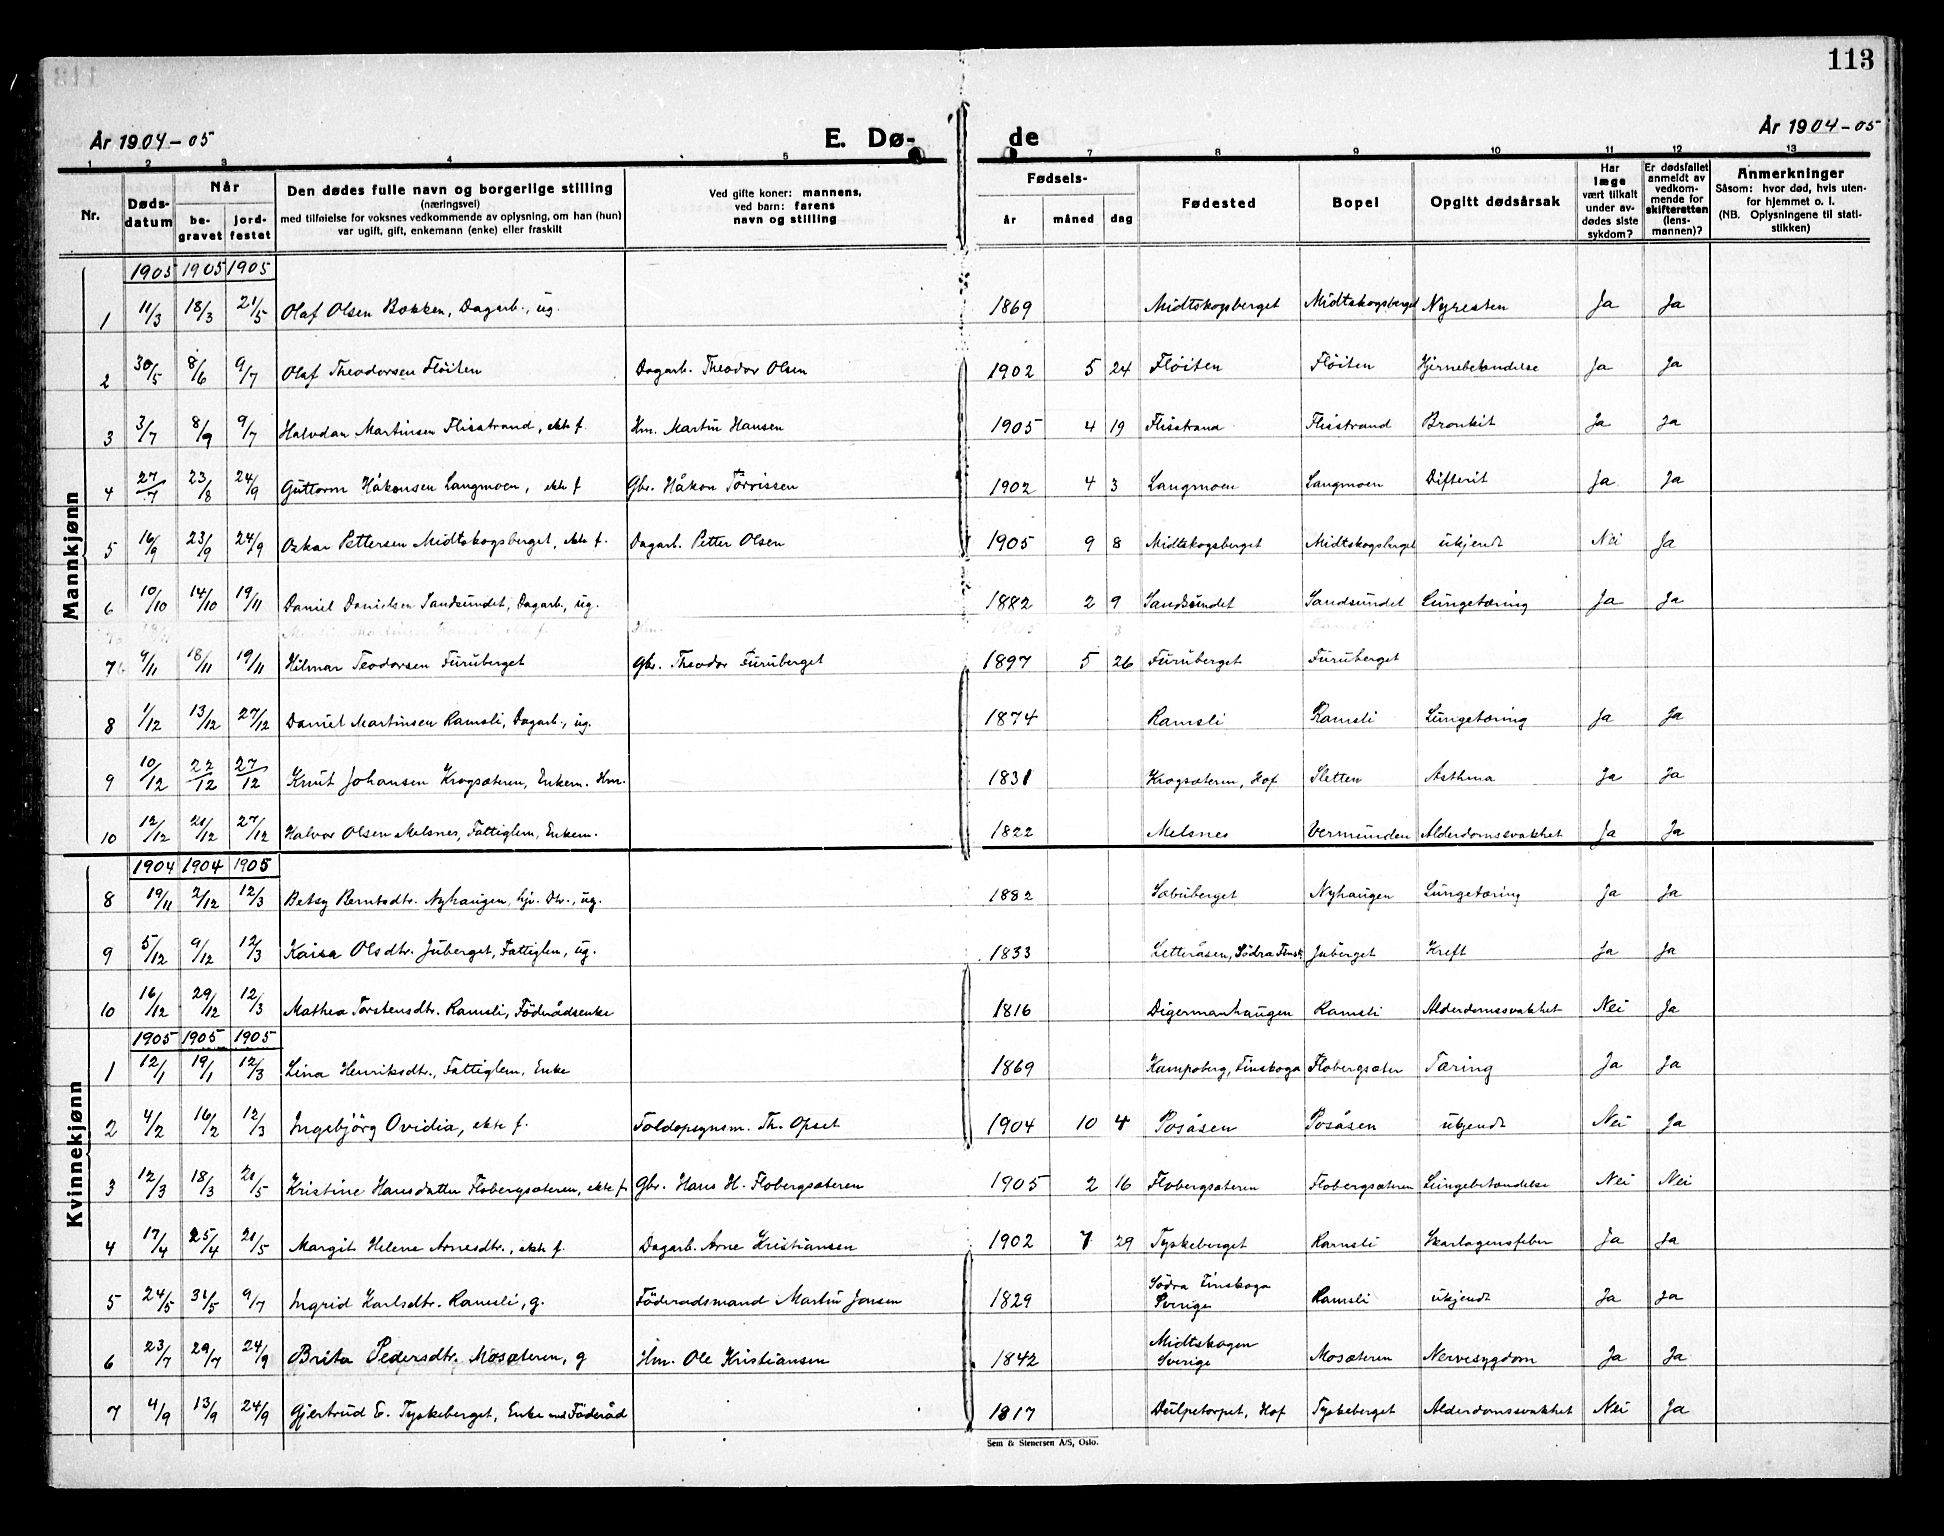 113
År 1904-05
E. Dø-
de
År 1904-05
1 2 3 4 5 7 8 9 10 11 12 13
Nr.
Døds-
datum
Når
be-
gravet
jord-
festet
Den dødes fulle navn og borgerlige stilling
(næringsvei)
med tilføielse for voksnes vedkommende av oplysning, om han (hun)
var ugift, gift, enkemann (enke) eller fraskilt
Ved gifte koner: mannens,
ved barn: farens
navn og stilling
Fødsels-
år måned dag
Fødested
Bopel
Opgitt dødsårsak
Har
læge
vært tilkalt
under av-
dødes siste
sykdom?
Er dødsfallet
anmeldt av
vedkom-
mende for
skifteretten
(lens-
mannen)?
Anmerkninger
Såsom: hvor død, hvis uten-
for hjemmet o. l.
(NB. Oplysningene til stati-
stikken)
Mannkjønn
1905 1905 1905
1 11/3 18/3 21/5 Olaf Olsen Bakken, Dagarb., ug. 1869 Midtskogsberget Midtskogsberget Nyresten Ja Ja
2 30/5 8/6 9/7 Olaf Theodorsen Flöiten Dagarb. Theodor Olsen 1902 5 24 Flöiten Flöiten Hjernebetændelse Ja Ja
3 3/7 8/9 9/7 Halvdan Martinsen Flisstrand, ekte f. Hm. Martin Hansen 1905 4 19 Flisstrand Flisstrand Bronkit Ja Ja
4 27/7 23/8 24/9 Guttorm Håkonsen Langmoen, ekte f Gbr. Håkon Torrissen 1902 4 3 Langmoen Langmoen Difterit Ja Ja
5 16/9 23/9 24/9 Oskar Pettersen Midtskogsberget, ekte f. Dagarb. Petter Olsen 1905 9 8 Midtskogsberget Midtskogsberget ukjendt Nei Ja
6 10/10 14/10 19/11 Daniel Danielsen Sandsundet, Dagarb., ug. 1882 2 9 Sandsundet Sandsundet Lungetæring Ja Ja
7 9/11 18/11 19/11 Hilmar Teodorsen Furuberget Gbr. Theodor Furuberget 1897 5 26 Furuberget Furuberget
8 1/12 13/12 27/12 Daniel Martinsen Ramsli, Dagarb., ug. 1874 Ramsli Ramsli Lungetæring Ja Ja
9 10/12 22/12 27/12 Knut Johansen Krogsæteren, Enkem. Hm. 1831 Krogsæteren, Hof Sletten Asthma Ja Ja
10 12/12 21/12 27/12 Halvor Olsen Melsnes, Fattiglem, Enkem. 1822 Melsnes Vermunden Alderdomssvakhet Ja Ja
Kvinnekjønn
1904 1904 1905
8 19/11 2/12 12/3 Betsy Berntsdtr. Nyhaugen, hjv. Dtr., ug. 1882 Sæbuberget Nyhaugen Lungetæring Ja Ja
9 5/12 9/12 12/3 Kaisa Olsdtr. Juberget, Fattiglem, ug. 1833 Letteråsen, Södra Finsk. Juberget Kreft Ja Ja
10 16/12 29/12 12/3 Mathea Torstensdtr. Ramsli, Föderådsenke 1816 Digermanhaugen Ramsli Alderdomssvakhet Nei Ja
1905 1905 1905
1 12/1 19/1 12/3 Lina Henriksdtr., Fattiglem, Enke 1869 Kampoberg, Finskoga Flobergsæter Tæring Ja Ja
2 4/2 16/2 12/3 Ingebjörg Ovidia, ekte f. Foldopsynsm. Th. Opset 1904 10 4 Posåsen Posåsen ukjendt Nei Ja
3 12/3 18/3 21/5 Kristine Hansdatter Flobergsæteren, ekte f Gbr. Hans H. Flobergsæteren 1905 2 16 Flobergsæteren Flobergsæteren Lungebetændelse Nei Nei
4 17/4 25/4 21/5 Margit Helene Arnesdtr., ekte f. Dagarb. Arne Kristiansen 1902 7 29 Tyskeberget Ramsli Skarlagensfeber Ja Ja
5 24/5 31/5 9/7 Ingrid Karlsdtr. Ramsli, g. Föderadsmand Martin Jansen 1829 Södra Finskoga Sverige Ramsli ukjendt Ja Ja
6 23/7 29/7 24/9 Brita Pedersdtr. Mosæteren, g Hm. Ole Kristiansen 1842 Midtskogen Sverige Mosæteren Nervesygdom Ja Ja
7 4/9 13/9 24/9 Gjertrud E. Tyskeberget, Enke med Föderåd 1817 Dulpetorpet, Hof Tyskeberget Alderdomssvakhet Nei Ja
Sem & Stenersen A/S, Oslo.